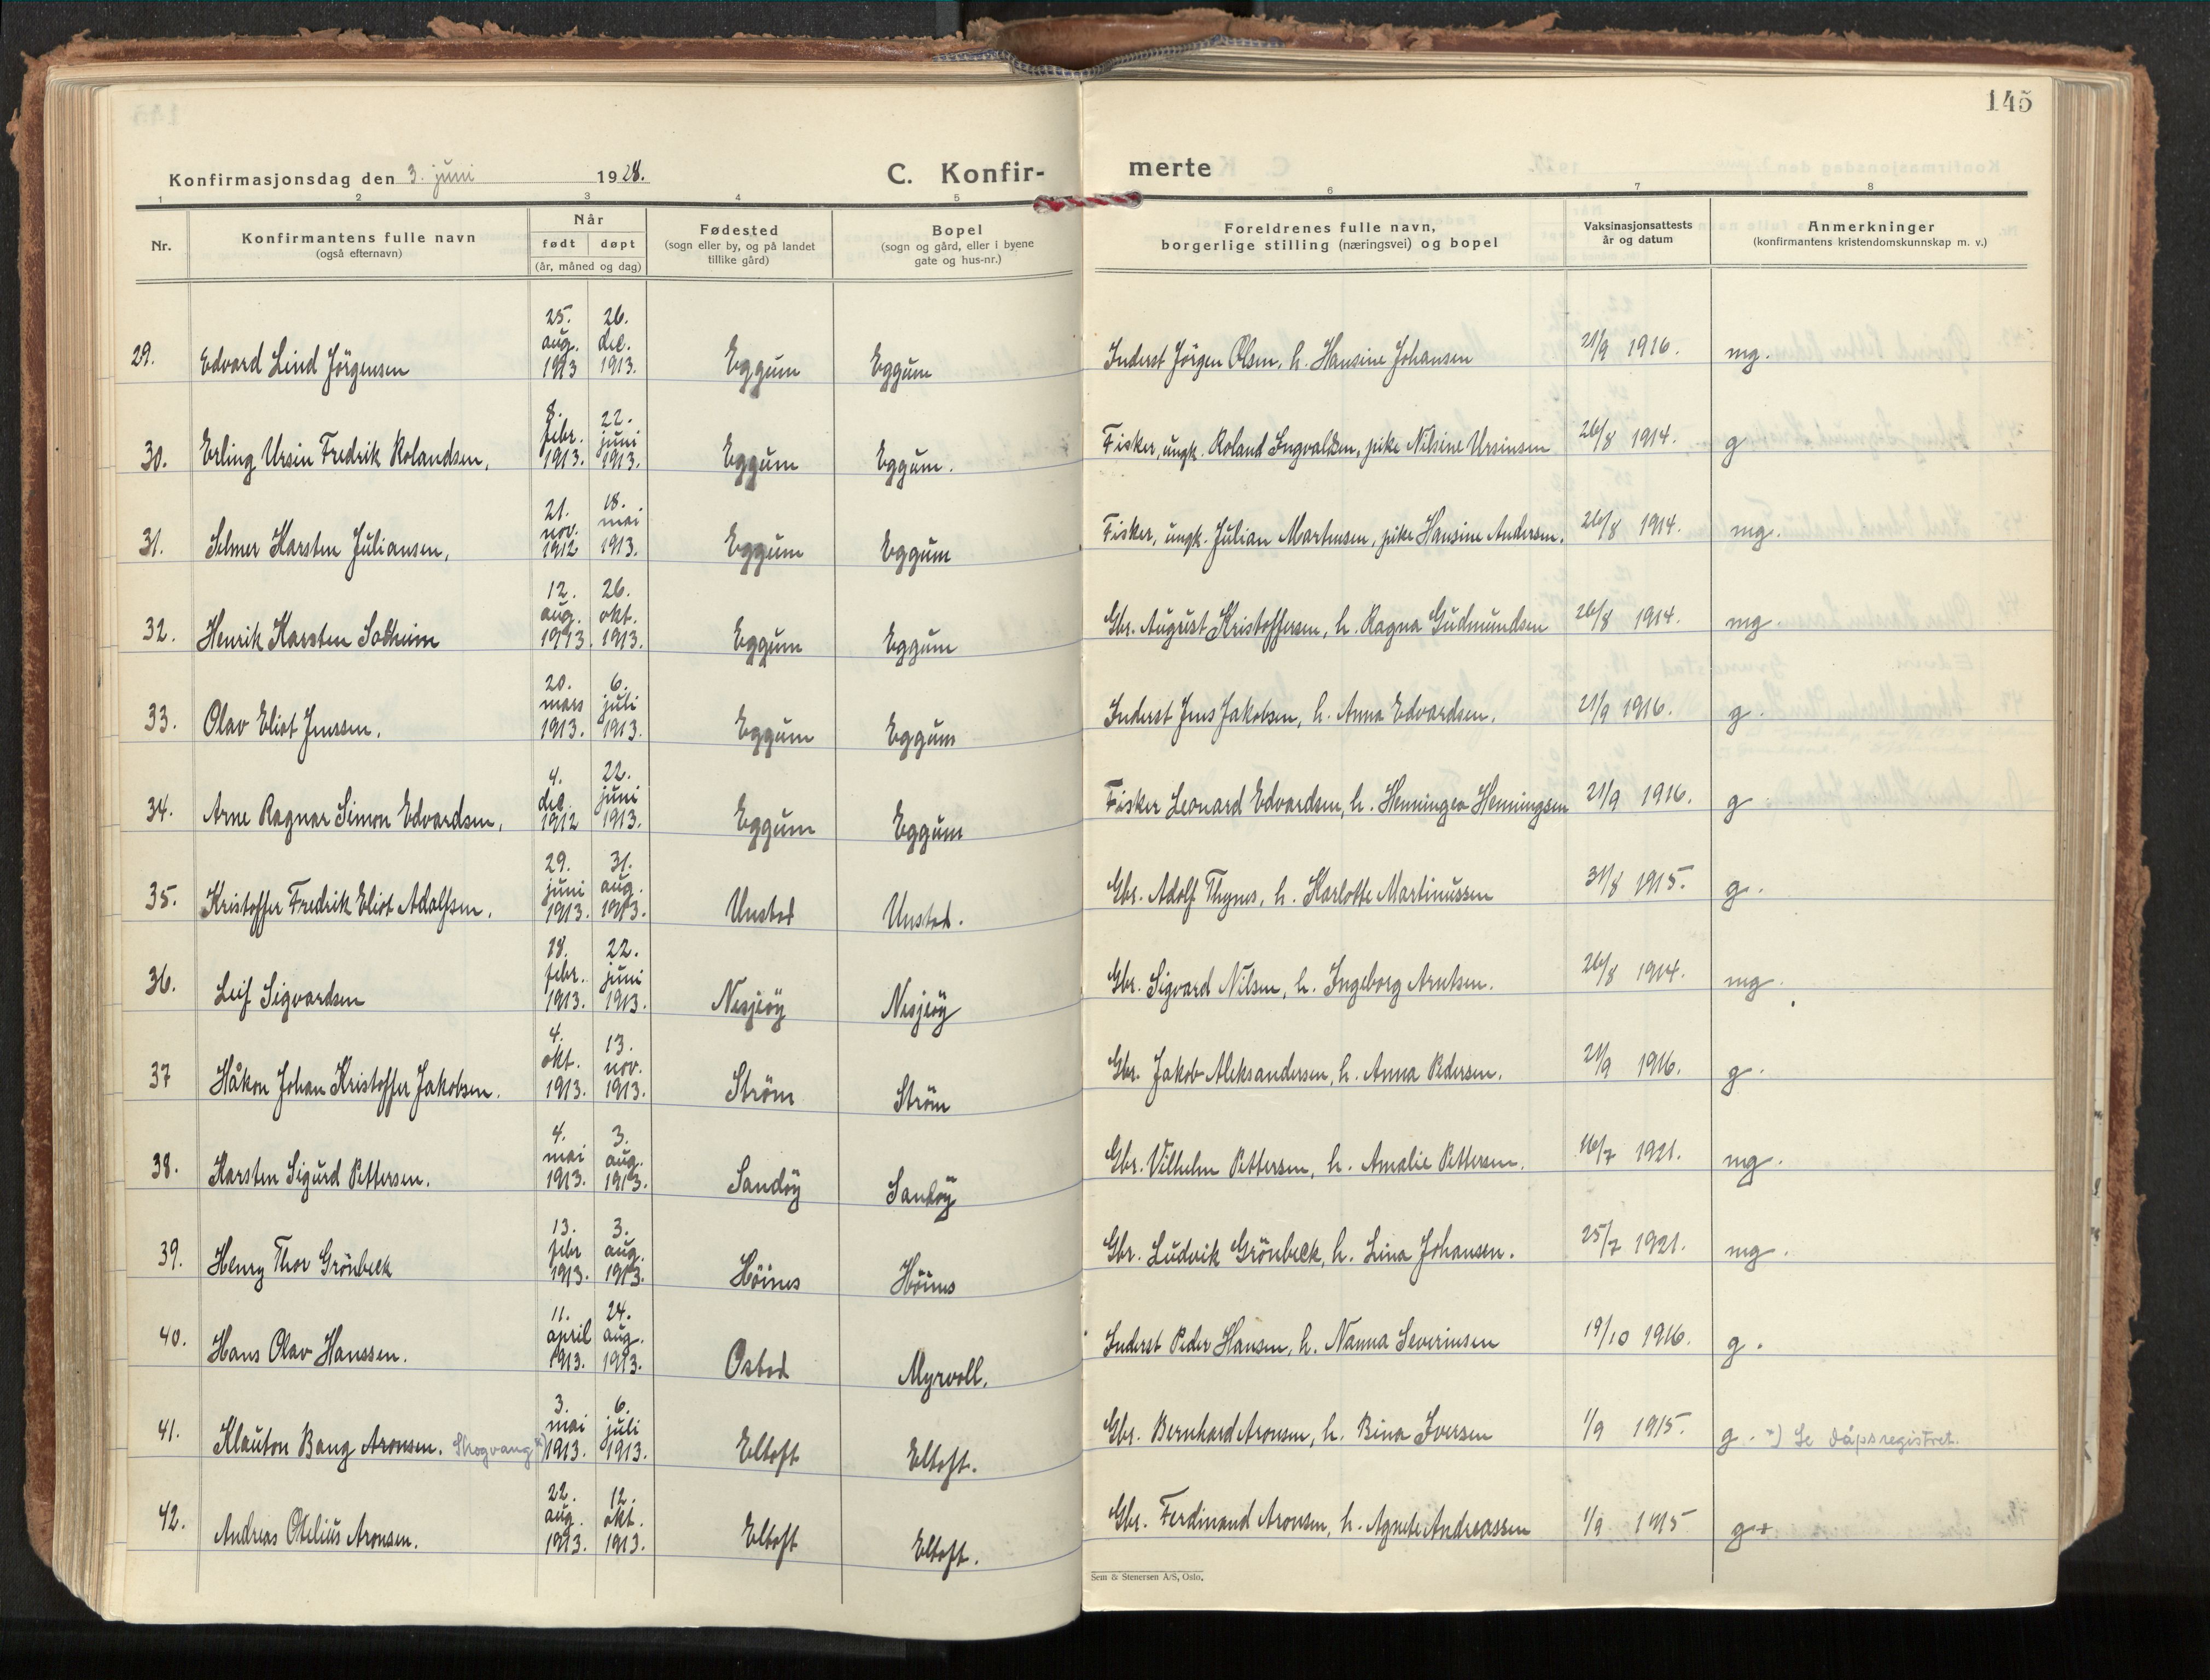 145
Konfirmasjonsdag den 3. juni 1928. C. Konfir- merte
1 2 3 4 5 6 7 8
Nr. Konfirmantens fulle navn (også efternavn) Når født døpt (år, måned og dag) Fødested (sogn eller by, og på landet tillike gård) Bopel (sogn og gård, eller i byene gate og hus-nr.) Foreldrenes fulle navn, borgerlige stilling (næringsvei) og bopel Vaksinasjonsattests år og datum Anmerkninger (konfirmantens kristendomskunnskap m. v.)
29. Edvard Lind Jörgensen 25. aug. 1913 26. dec. 1913. Eggum Eggum Inderst Jörgen Olsen, h. Hansine Johansen 21/9 1916. mg.
30. Erling Ursin Fredrik Rolandsen, 8. febr. 1913. 22. juni 1913. Eggum Eggum. Fisker, ungk. Roland Ingvaldsen, pike Nilsine Ursinsen 26/8 1914. g
31. Selmer Karsten Juliansen, 21. nov. 1912 18. mai 1913. Eggum Eggum Fisker, ungk. Julian Martensen, pike Hansine Andersen. 26/8 1914. mg.
32. Henrik Karsten Solheim 12. aug. 1913. 26. okt. 1913. Eggum Eggum Gbr. August Kristoffersen, h. Ragna Gudmundsen 26/8 1914. mg.
33. Olav Eliot Jenssen. 20. mars 1913. 6. juli 1913. Eggum Eggum Inderst Jens Jakobsen, h. Anna Edvardsen. 21/9 1916. g.
34. Arne Ragnar Simon Edvardsen, 4. des. 1912 22. juni 1913. Eggum Eggum Fisker Leonard Edvardsen, h. Henningea Henningsen 21/9 1916. g.
35. Kristoffer Fredrik Eliot Adolfsen. 29. juni 1913. 31. aug. 1913. Unstad Unstad. Gbr. Adolf Thynes, h. Karlotte Martinussen 31/8 1915. g.
36. Leif Sigvardsen 18. febr. 1913. 22. juni 1913. Nesjeöy Nesjeöy Gbr. Sigvard Nilsen, h. Ingeborg Arntsen. 26/8 1914. mg.
37 Håkon Johan Kristoffer Jakobsen. 4. okt. 1913. 13. nov. 1913. Ström Ström Gbr. Jakob Aleksandersen, h. Anna Pedersen. 21/9 1916. g.
38. Karsten Sigurd Pettersen. 4. mai 1913. 3. aug. 1913. Sandöy Sandöy Gbr. Vilhelm Pettersen, h. Amalie Pettersen. 16/7 1921. mg.
39. Henry Thor Grönbeck 13. febr 1913. 3. aug. 1913. Höines Höines Gbr. Ludvik Grönbeck, h. Lina Johansen. 25/7 1921. mg.
40. Hans Olav Hanssen. 11. april 1913. 24. aug. 1913. Ostad Myrvoll. Inderst Peder Hansen, h. Nanna Severinsen 19/10 1916. g.
41. Klauton Bang Aronsen. Skogvang *) 3. mai 1913. 6. juli 1913. Eltoft Eltoft. Gbr. Bernhard Aronsen, h. Bina Iversen 1/9 1915. g. *) Se dåpsregistret.
42. Andreas Otelius Aronsen. 22. aug. 1913. 12. okt. 1913. Eltoft Eltoft. Gbr. Ferdinand Aronsen, h. Agnete Andreassen 1/9 1915 g+
Sem & Stenersen A/S, Oslo.